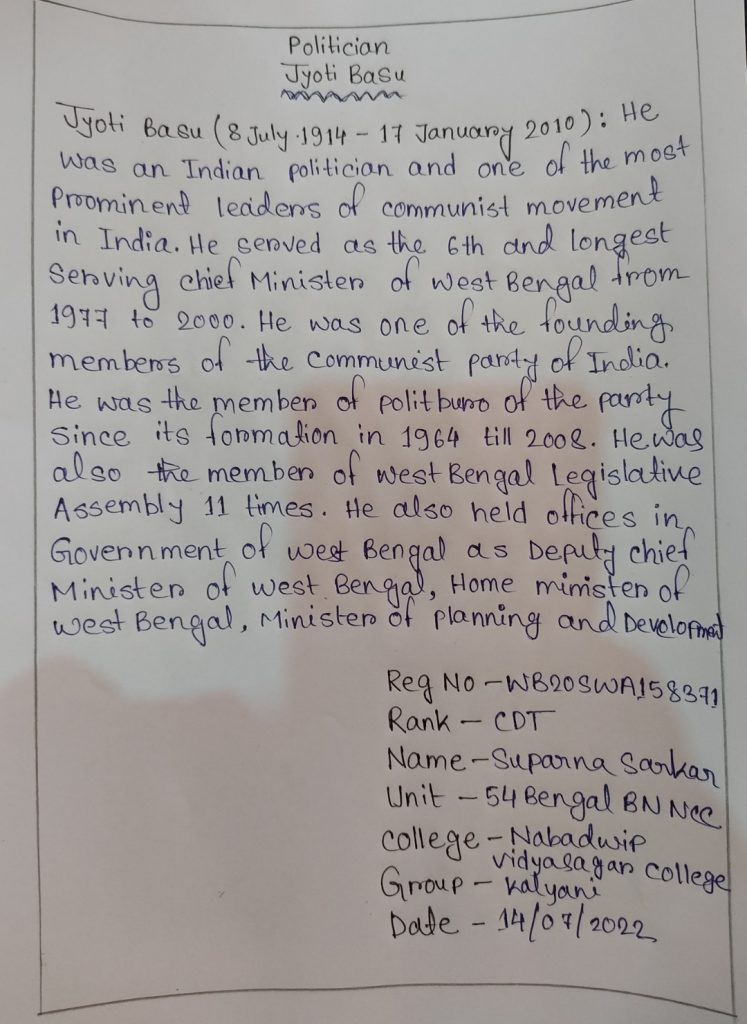 Politician
Jyoti Basu
Jyoti Basu (8 July 1914 - 17 January 2010): He
was an Indian politician and one of the most
Prominent leaders of communist movement
in India. He served as the 6th and longest
Serving chief Minister of west Bengal from
1977 to 2000. He was one of the founding
members of the communist party of India.
He was the member of politburo of the party
since its formation in 1964 till 2008. He was
also the member of west Bengal Legislative
Assembly 11 times. He also held offices in
Government of west Bengal as Deputy chief
Minister of west Bengal, Home minister of
west Bengal, Minister of planning and Development
Reg No - WB20SWA158371
Rank - CDT
Name - Suparna Sarkar
Unit - 54 Bengal BN NCC
college - Nabadwip
vidyasagar college
Group - Kalyani
Date - 14/07/2022